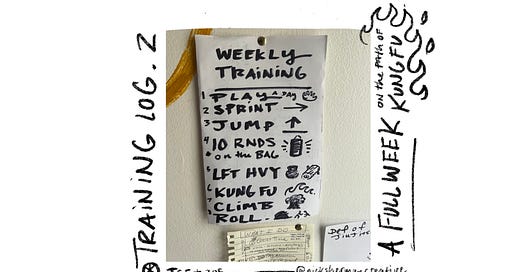 TRAINING LOG. 2
WEEKLY
TRAINING
1 PLAY A DAY
2 SPRINT →
3 JUMP ↑
4 10 RNDS
on the BAG
5 LFT HVY
6 KUNG FU
7 CLIMB
ROLL
WHAT I DO
Def of
A FULL WEEK
on the PATH OF
KUNG FU